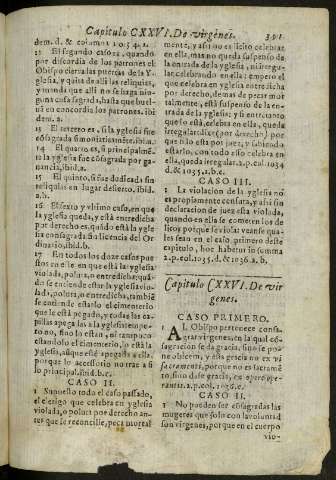 Capitulo CXXVI. De virgènes. 391.
dem. d. & column. 1034. a.
12 El segundo caso es, quando
por discordia de los patrones el
Obispo cierra las puertas de la Y-
glesia, y quita de alli las reliquias,
y manda que alli no se haga nin-
guna cosa sagrada, hasta que buel-
uā en concordia los patrones. ibi-
dem. a.
13 El tercero es, si la yglesia fue
cōsagrada simoniaticamēte, ibi. a.
14 El quarto es, si principalmē-
te la yglesia fue cōsagrada por ga-
nancia, ibid. b.
15 El quinto, si fue dedicada sin
reliquias en lugar desierto, ibid.
a. b.
16 El sexto y vltimo caso, en que
la yglesia queda, y está entredicha
por derecho es, quādo está la ygle
sia consagrada sin licencia del Or-
dinario, ibid. b.
17 En todos los doze casos pues-
tos en el e en que está la yglesia
violada, polura, o entredicha, quā-
do se entiende estar la yglesia vio-
lada, poluta, o entredicha, tambiē
se entiende estarlo el cimenterio
que le está contiguo y pegado, pe-
ro no, sino lo está; ni tampoco
estandolo el cimenterio, lo está la
yglesia, aūque esté apegada a ella.
porque lo accessorio no trae a si
lo principal. ibid. b. c.
CASO II.
1 Supuesto todo el caso passado,
el clerigo que celebra en yglesia
violada, o poluta por derecho an-
tes que se reconcilie, peca mortal-
mente, y assi no es licito celebrar
en ella, mas no queda suspenso de
la entrada en la yglesia, ni irregu-
lar celebrando en ella: empero el
que celebra en yglesia entredicha
por derecho, demas de pecar mor
talmente, está suspenso de la en-
trada de la yglesia: y si entretanto
que lo está, celebra en ella, queda
irregular dize (por derecho) por
que si lo está por el hombre, aūque
estarlo, con todo esso celebra en
ella, queda irregular. 2. p. col. 1034
d. & 1035. a. b. c.
CASO III.
1 La violacion de la yglesia no
es propiamente censura, y assi sin
declaracion de juez esta violada,
quando en ella se cometen los de
licos porque se viola: veanse qua-
les sean en el caso primero deste
capitulo, hoc habetur in summa
2. p. col. 1035. d. & 1036. a. b.
Capitulo CXXVI. De vir
genes.
CASO PRIMERO.
1 AL Obispo pertenece consa-
grar virgenes, en la qual cō-
sagracion se da gracia, sino se po-
ne obicem, y esta gracia no es vi
sacramenti, porque no es sacramē
to, sino dase gracia, ex opere ope-
rantis. 2. p. col. 1036. c.
CASO II.
1 No pueden ser cōsagradas las
mugeres que solo con la voluntad
son virgenes, porque en el cuerpo
vio-